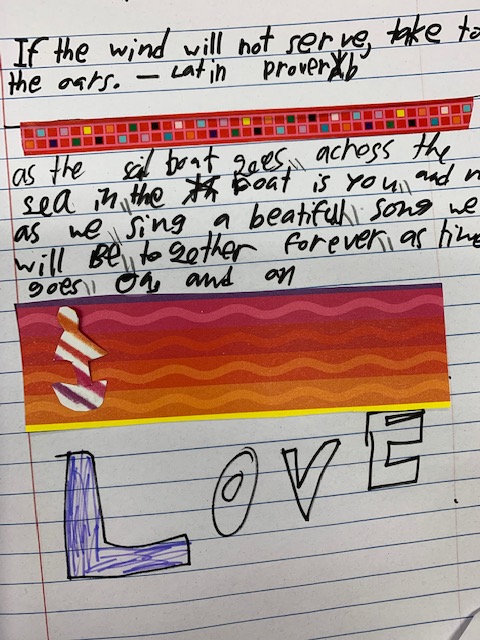 If the wind will not serve, take to
the oars. — Latin proverb
as the sail boat goes,, across the
sea in,, the boat is you,, and
as we,, sing a beatiful,, song we
will Be,, together forever,, as time
goes,, On, and on
LOVE